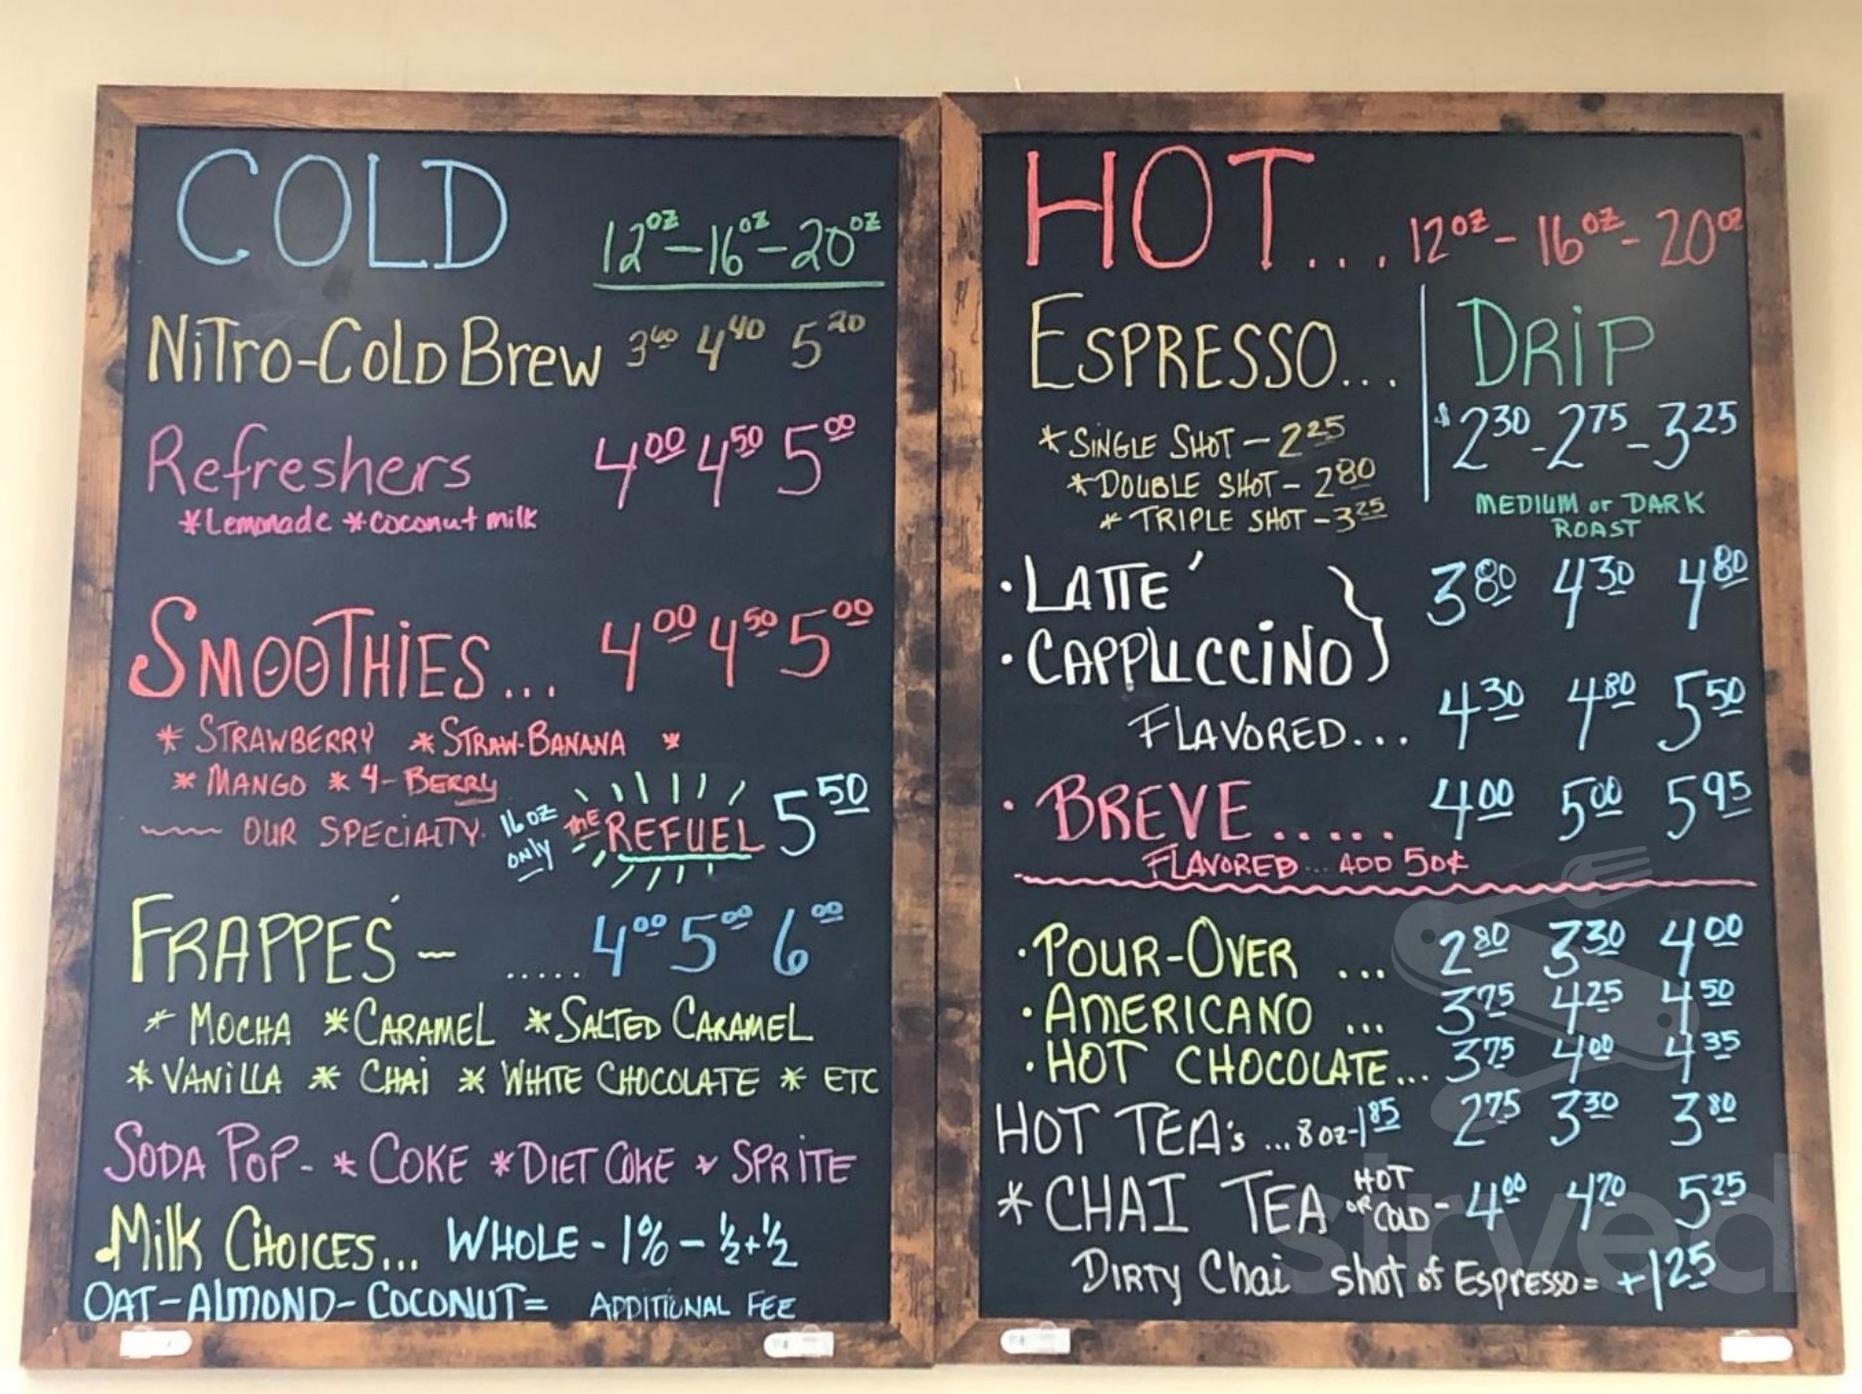 COLD
12oz-16oz-20oz
Nitro-Cold Brew 3⁶⁰ 4⁴⁰ 5²⁰
Refreshers 4⁰⁰ 4⁵⁰ 5⁰⁰
*Lemonade *coconut milk
SMOOTHiES... 4⁰⁰ 4⁵⁰ 5⁰⁰
* STRAWBERRY * STRAW-BANANA *
* MANGO * 4-BERRY
OUR SPECIALTY. 16oz only THE REFUEL 5⁵⁰
FRAPPES ~ ..... 4⁰⁰ 5⁰⁰ 6⁰⁰
* MOCHA *CARAMEL *SALTED CARAMEL
*VANiLLA * CHAi * WHITE CHOCOLATE * ETC
SODA POP- * COKE *DIET COKE * SPRiTE
Milk CHOICES... WHOLE - 1% - ½+½
OAT-ALMOND-COCONUT= ADDITIONAL FEE
HOT... 12oz - 16oz - 20oz
ESPRESSO...
* SINGLE SHOT - 2²⁵
* DOUBLE SHOT - 2⁸⁰
* TRIPLE SHOT - 3²⁵
DRiP
$2³⁰-2⁷⁵-3²⁵
MEDIUM or DARK
ROAST
· LATTE' 3⁸⁰ 4³⁰ 4⁸⁰
· CAPPUCCiNO
FLAVORED... 4³⁰ 4⁸⁰ 5⁵⁰
· BREVE..... 4⁰⁰ 5⁰⁰ 5⁹⁵
FLAVORED... ADD 50¢
· POUR-OVER ... 2⁸⁰ 3³⁰ 4⁰⁰
· AMERICANO ... 3⁷⁵ 4²⁵ 4⁵⁰
· HOT CHOCOLATE... 3⁷⁵ 4⁰⁰ 4³⁵
HOT TEA's ...8oz-1⁸⁵ 2⁷⁵ 3³⁰ 3⁸⁰
* CHAI TEA HOT OR COLD - 4⁰⁰ 4⁷⁰ 5²⁵
DIRTY Chai shot of Espresso= +1²⁵
sirved